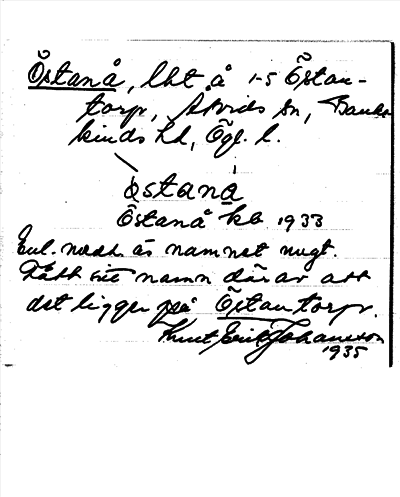 Östanå, lht å 1-5 Östan-
torp, Åtvids sn, Banke-
kinds hd, Ögl. l.
östanå
Östanå kb 1933
Enl. medd. är namnet nugt.
Fått sitt namn därav att
det ligger på Östantorp.
Knut Erik Johansson
1935